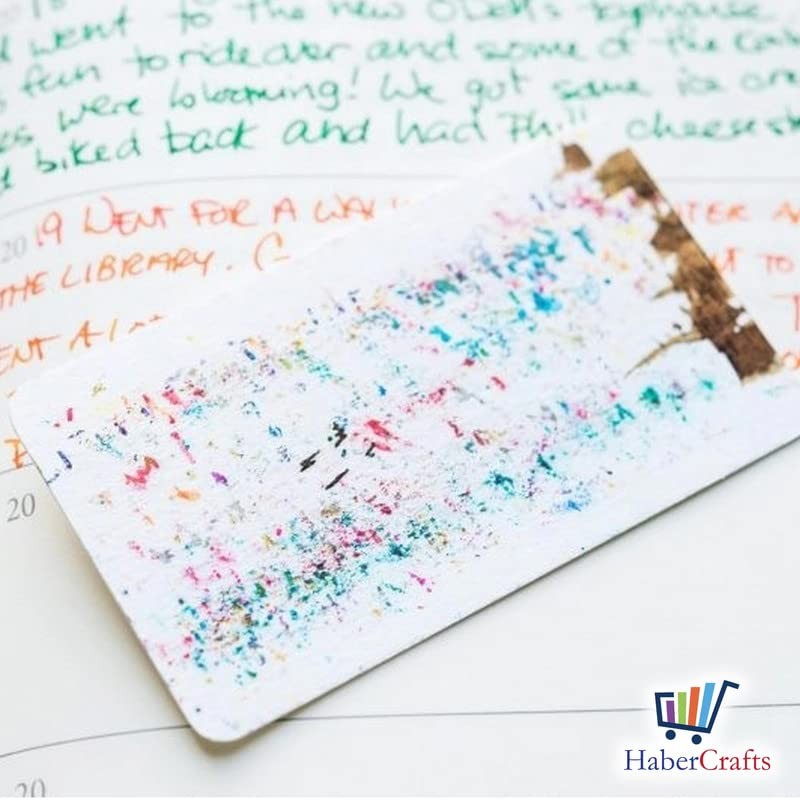 went to the new O'Dell's taphouse
fun to ride over and some of the
es were blooming! We got some ice cre
biked back and had Phill cheeseste
20 19 WENT FOR A WAL
THE LIBRARY.
TO
ENT
20
20
HaberCrafts